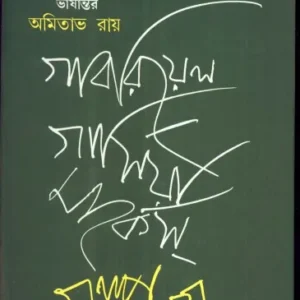 ভাষান্তর
অমিতাভ রায়
গাবরিয়েল
গার্সিয়া
মার্কেস্